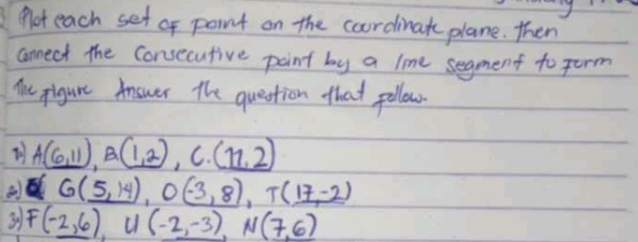 Plot each set of point on the coordinate plane. Then
Connect the Consecutive point by a line segment to form
the figure Answer the question that follow.
1) A(6,11), B(1,2), C.(11,2)
2) G(5,14), O(-3,8), T(17,-2)
3) F(-2,6), U(-2,-3), N(7,6)